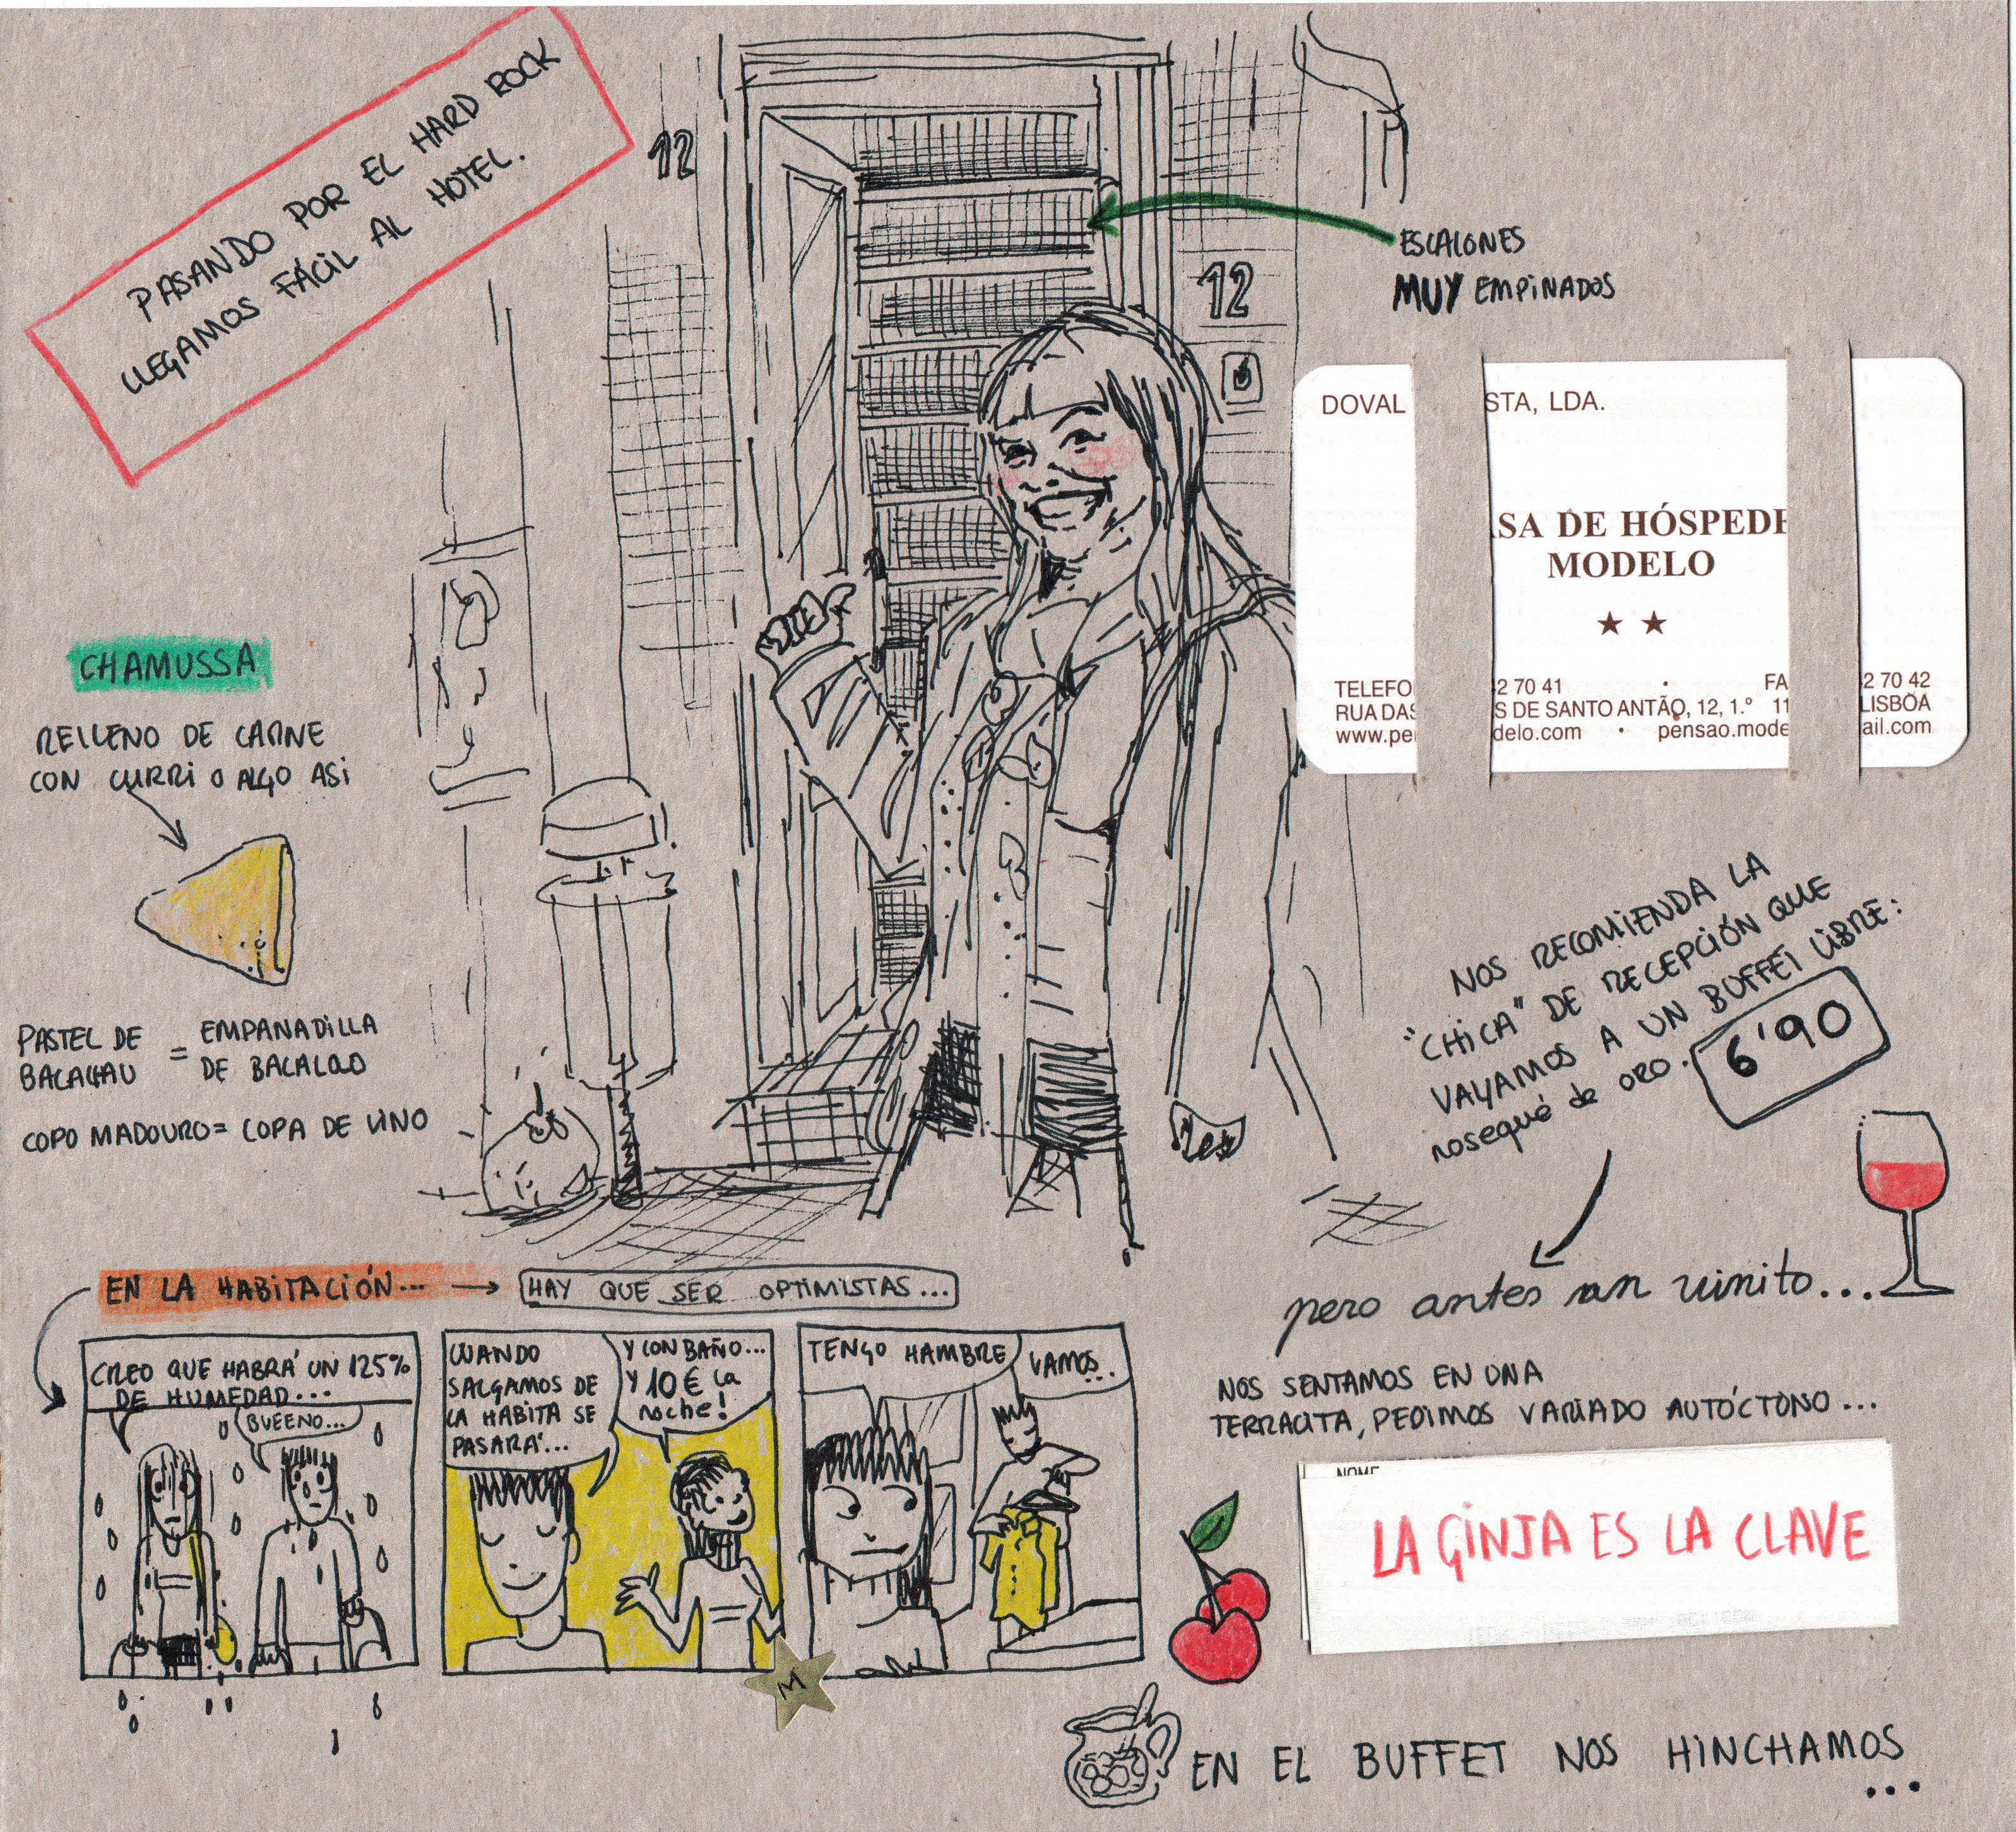 PASANDO POR EL HARD ROCK
LLEGAMOS FÁCIL AL HOTEL.
12
12
ESCALONES
MUY EMPINADOS
DOVAL STA, LDA.
SA DE HÓSPEDE
MODELO
TELEFO 2 70 41 • FA 2 70 42
RUA DAS S DE SANTO ANTÃO, 12, 1.º 11 LISBOA
www.pe delo.com • pensao.mode ail.com
CHAMUSSA
RELLENO DE CARNE
CON CURRI O ALGO ASI
PASTEL DE BACALHAU = EMPANADILLA DE BACALAO
COPO MADOURO = COPA DE VINO
NOS RECOMIENDA LA
"CHICA" DE RECEPCIÓN QUE
VAYAMOS A UN BUFFET LIBRE:
nosequé de oro. 6'90
pero antes un vinito...
EN LA HABITACIÓN... → HAY QUE SER OPTIMISTAS...
CREO QUE HABRÁ UN 125%
DE HUMEDAD...
BUEENO...
CUANDO
SALGAMOS DE
LA HABITA SE
PASARÁ...
Y CON BAÑO...
Y 10€ la
noche!
TENGO HAMBRE
VAMOS...
M
NOS SENTAMOS EN UNA
TERRACITA, PEDIMOS VARIADO AUTÓCTONO...
NOME
LA GINJA ES LA CLAVE
EN EL BUFFET NOS HINCHAMOS
...